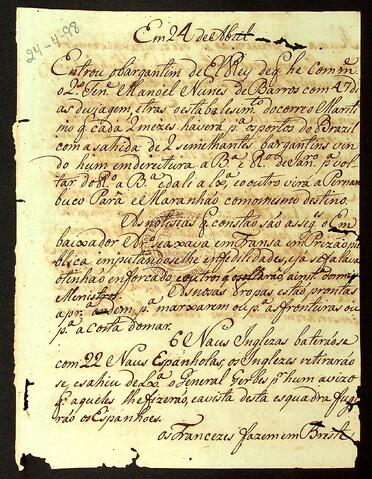 Em 24 de Abril
24-4-98
Entrou o bargantim de ElRey de q he Comm.e
o 2.o Ten.e Manoel Nunes de Barros com 47 di
as de viagem, e tras o estabalesim.to do correo Marit
mo q cada 2 mezes havera p.a os portos do Brazil
com a sahida de 2 semelhantes bargantins vin
do hum em direitura a B.a e R.o de Jan.ro, e vol
tar do R.o a B.a e dali a Lx.a e o outro vira a Pernam
buco Pará e Maranhão com o mesmo destino.
As notisias q constão são as seg.es o Em
baixador se axava em Fransa em Prizão pu
blica emputandoselhe enfedilidades, e ja se falava
o tinhão enforcado
Ministros
As nosas tropas estão prontas
a pr.a ordem p.a marxarem ou p.a as fronteiras ou
p.a a costa do mar.
6 Naus Inglezas baterãose
com 22 Naus Espanholas, os Inglezes retirarão
se, e sahiu de Lx.a o General p.r hum avizo
q aqueles lhe fizerão, e a vista desta esquadra fugi
rão os Espanhoes.
os Francezes fazem em Brest